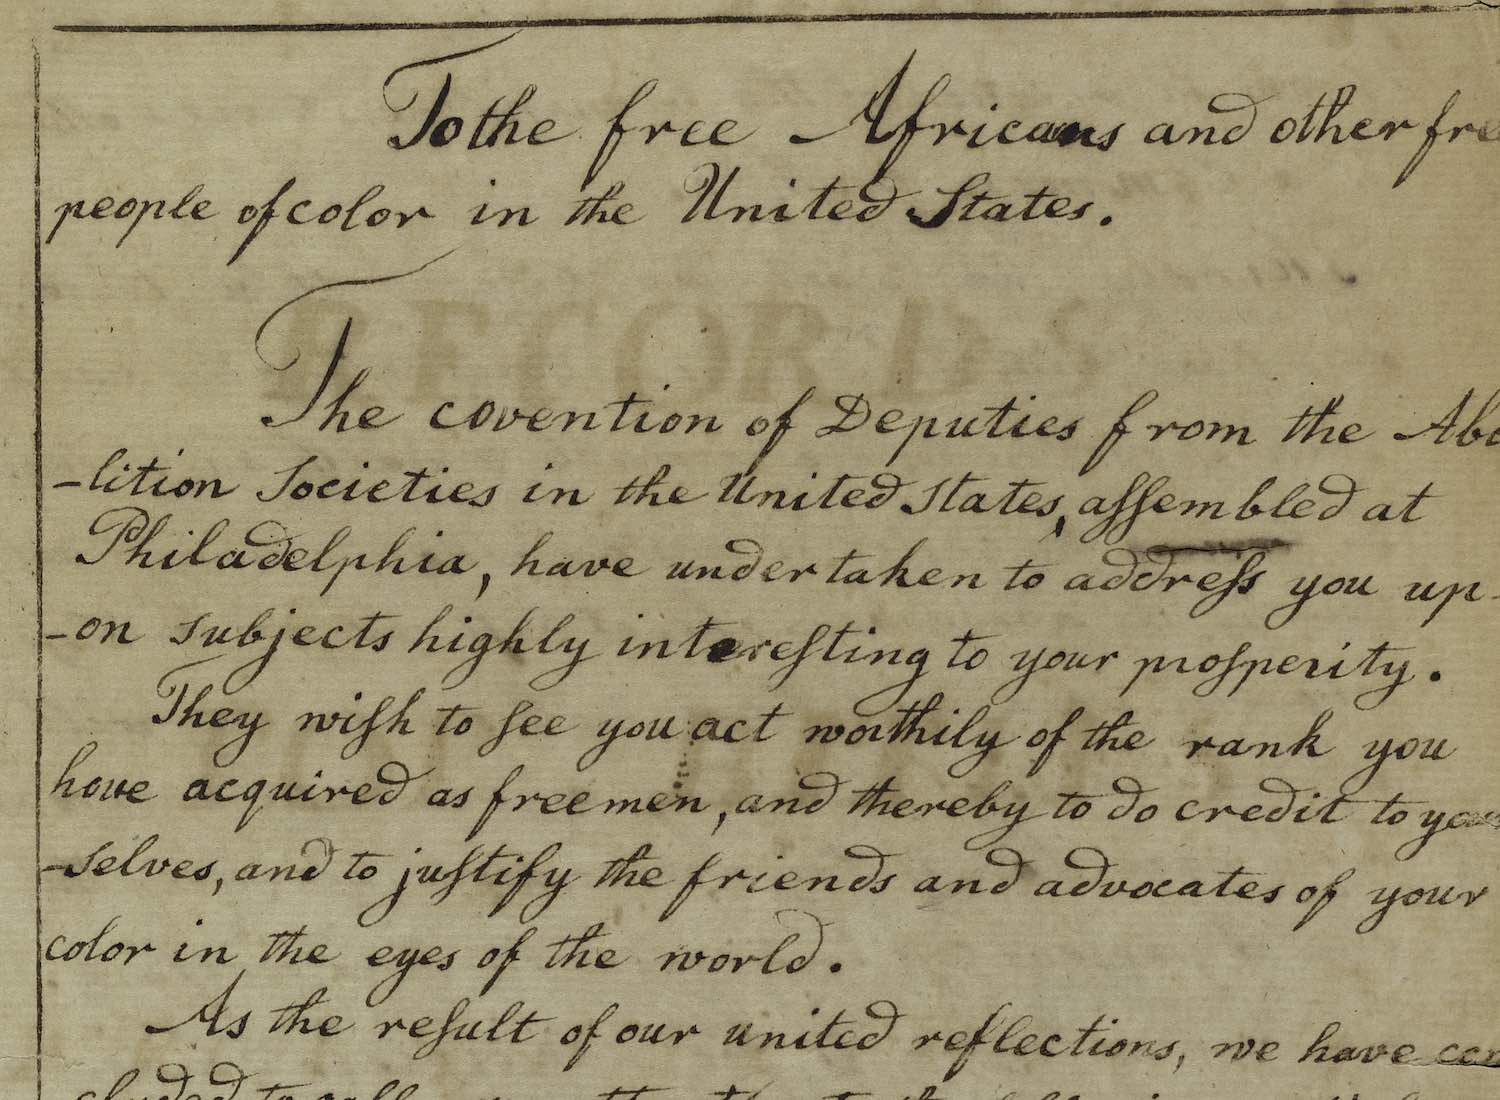 To the free Africans and other free
people of color in the United States.
The covention of Deputies from the Abo
-lition Societies in the United States, aſsembled at
Philadelphia, have undertaken to addreſs you up-
-on subjects highly intereſting to your proſperity.
They wiſh to ſee you act worthily of the rank you
have acquired as freemen, and thereby to do credit to your
-selves, and to juſtify the friends and advocates of your
color in the eyes of the world.
As the reſult of our united reflections, we have con
cluded to call